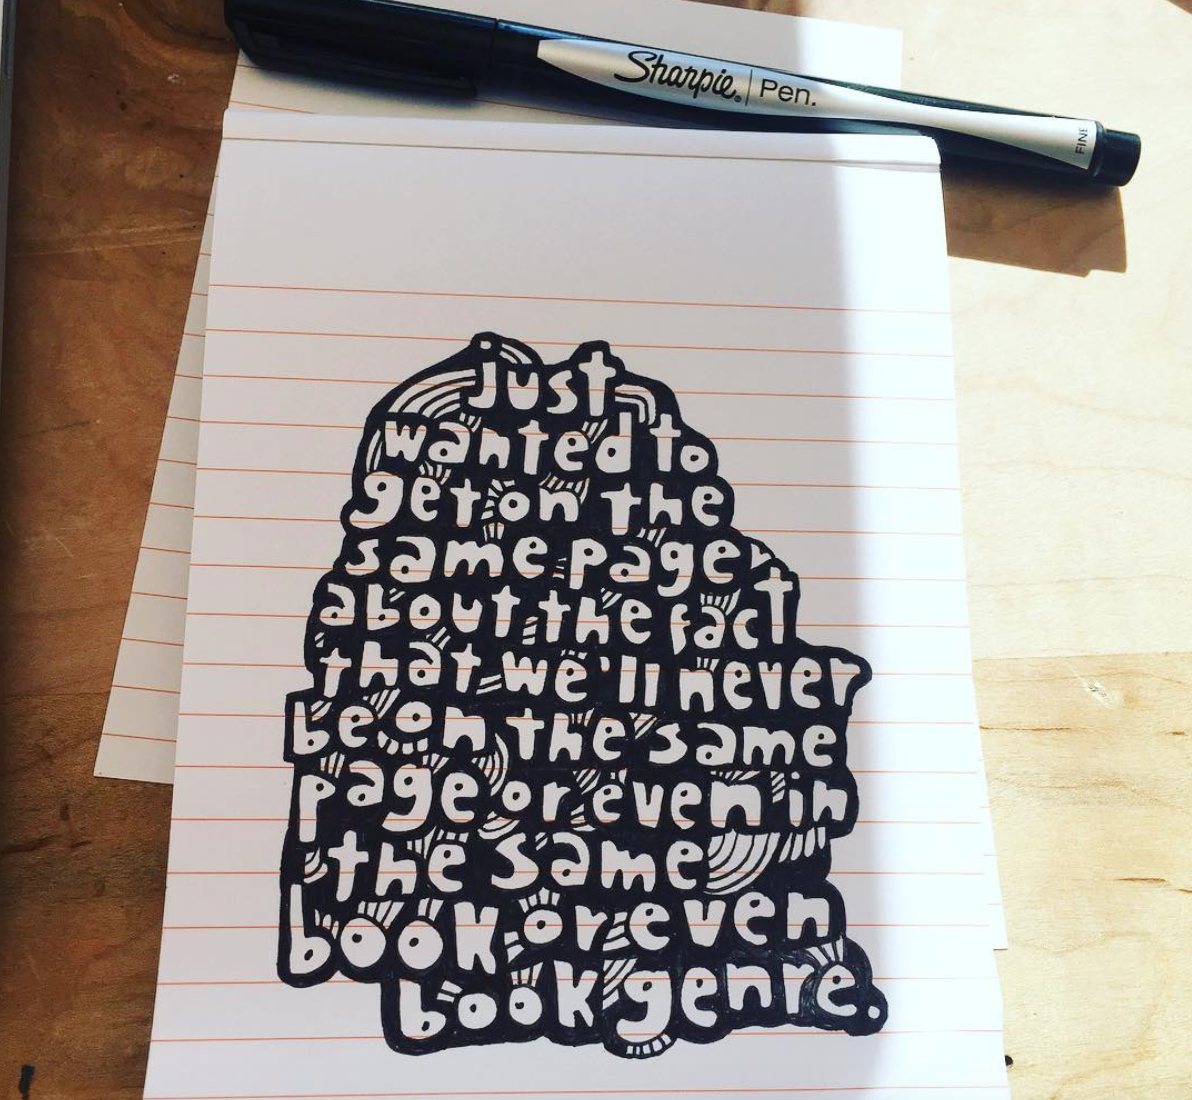 Sharpie. Pen.
FINE
just
wanted to
get on the
same page
about the fact
that we'll never
be on the same
page or even in
the same
book or even
book genre.